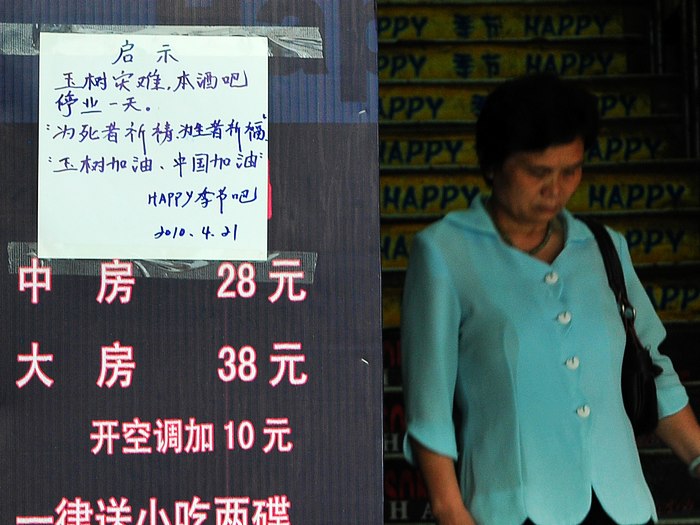 启示
玉树灾难,本酒吧
停业一天。
"为死者祈祷,为生者祈福"
"玉树加油、中国加油"
HAPPY季节吧
2010.4.21
中房 28元
大房 38元
开空调加10元
一律送小吃两碟
HAPPY 季节 HAPPY
季节
HAPPY 季节
HAPPY
HAPPY
HAPPY
HAPPY